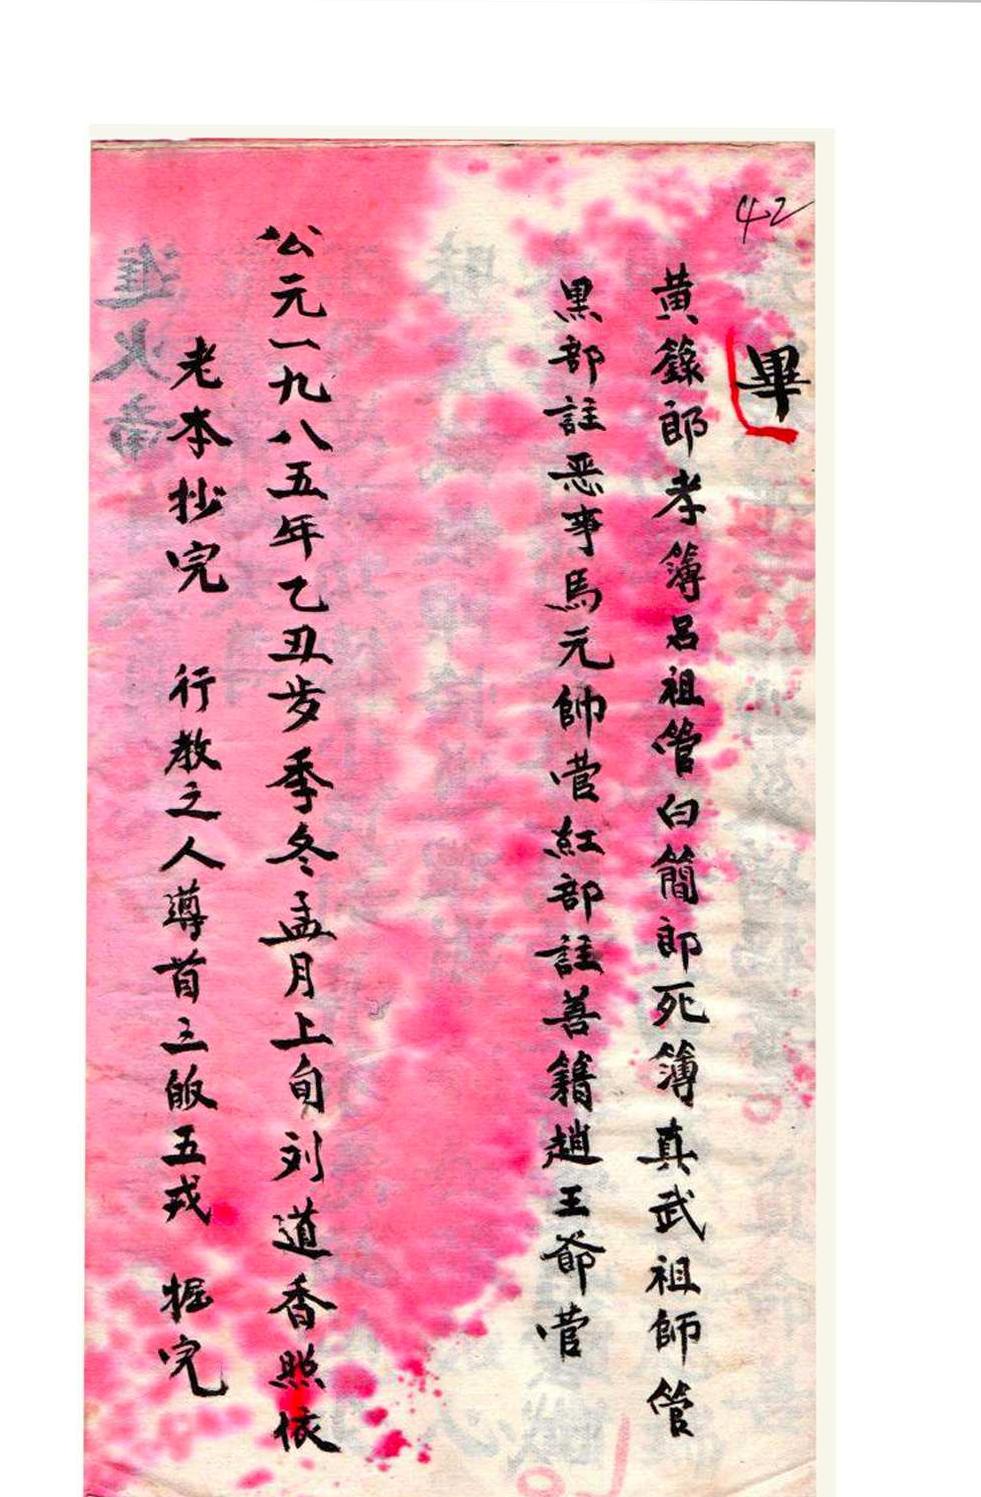 42
畢
黄籙郎孝簿呂祖管白簡郎死簿真武祖師管
黑部註恶事馬元帅管紅部註善籍趙王爺管
公元一九八五年乙丑步季冬孟月上旬刘道香照依
老本抄完 行教之人遵首三皈五戎 掘完